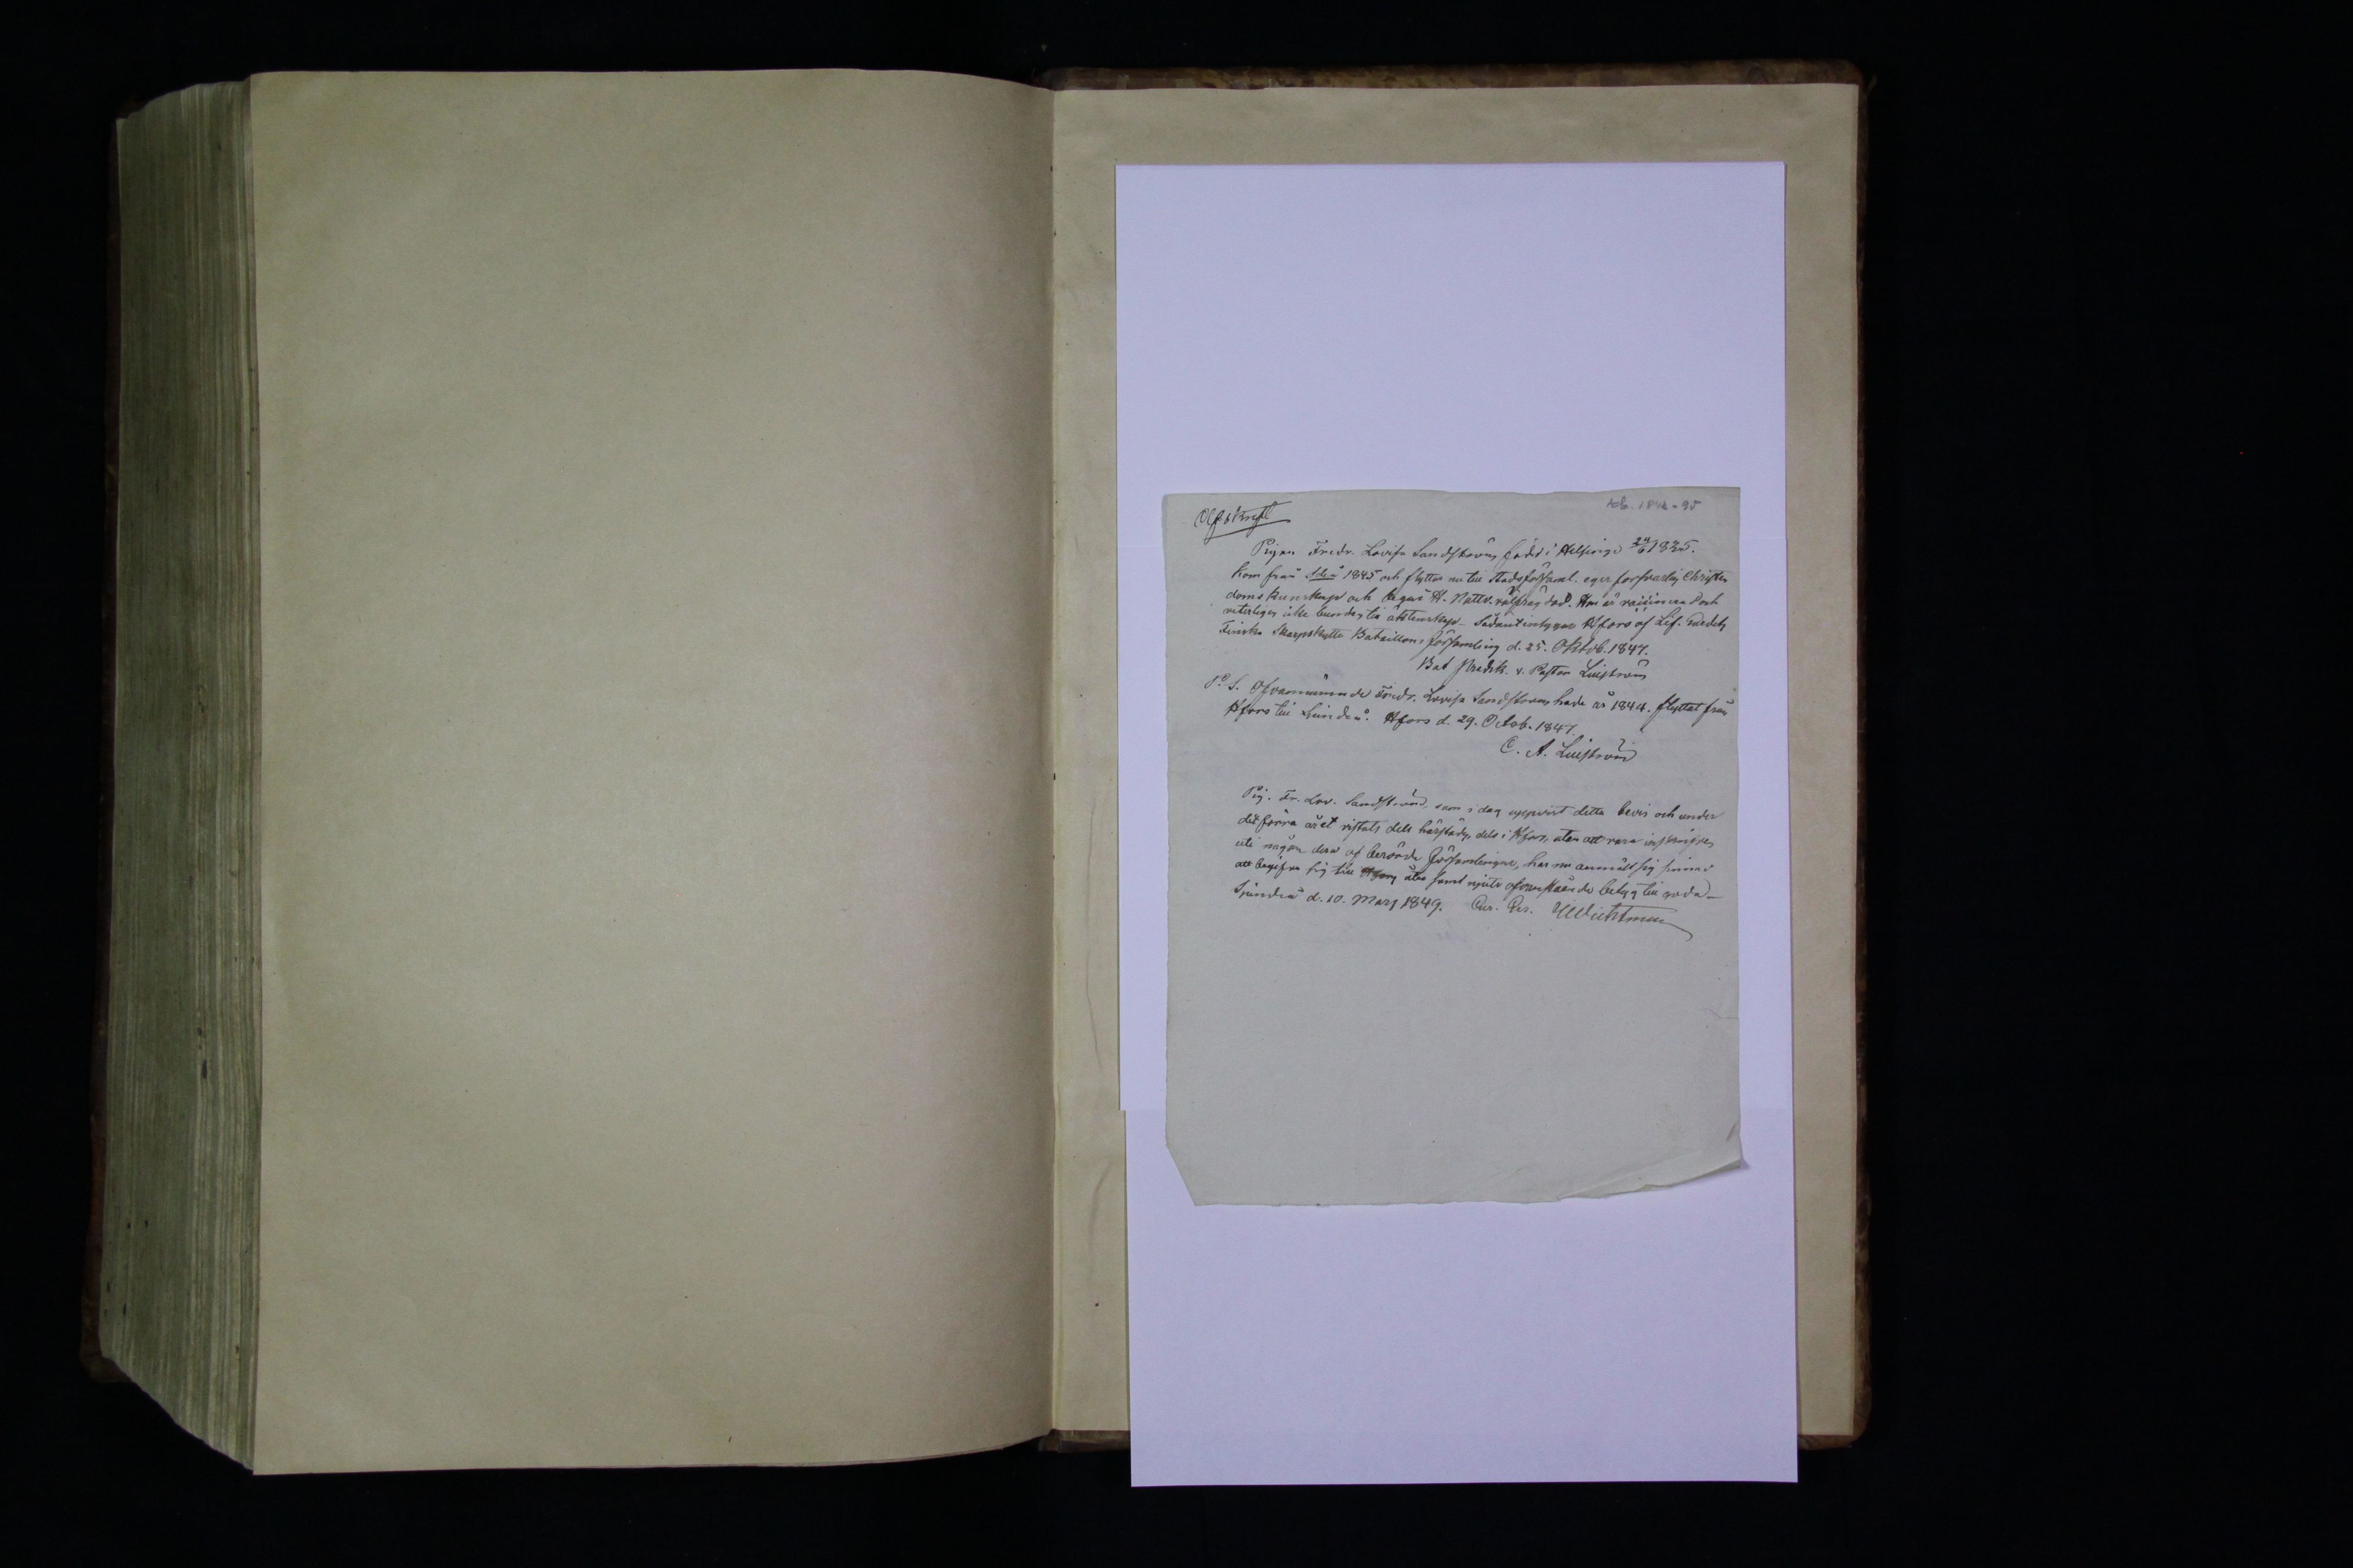 1848-95
Pigan Fredr. Lovisa Sandström, född i Helsinge 24/6 1825.
kom från 1845 och flyttar nu till Stadsförsaml. eger försvarlig Christen
doms kunskap och begår H. Nattv. Hon är vaccinerad och
veterligen icke bunden till äktenskap. Sådant intygar Hfors af Lif. Gardets
Finska Skarpskytte Bataillons församling d. 25. Oktob. 1847.
Bat Predik. v. Pastor Liliström
P. S. Ofvannämnde Fredr. Lovisa Sandström hade år 1844. flyttat från
Hfors till Sjundeå. Hfors d. 29. Octob. 1847.
C. A. Liliström
Pig. Fr. Lov. Sandström, som i dag uppvist detta bevis och under
det förra året vistats dels härstädes, dels i Hfors, utan att vara inskrifven
uti någon dera af berörde församlingar, har nu anmält sig sinnad
att begifva sig till Hfors åter samt njute ofvanstående betyg till godo.
Sjundeå d. 10. Mars 1849.